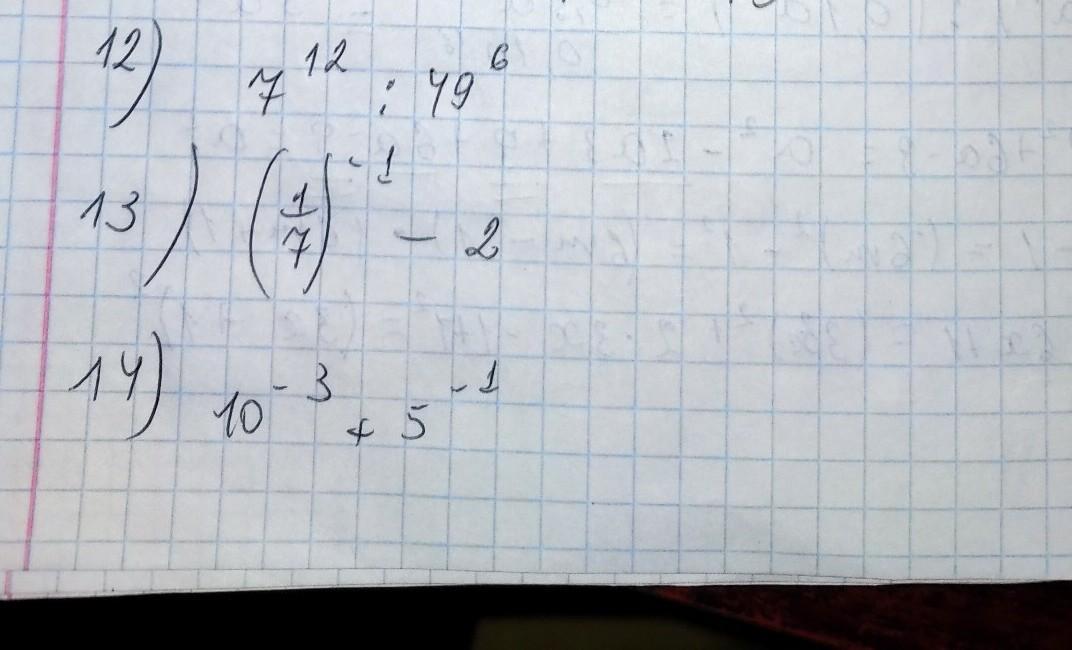 12) 7^12 : 49^6
13) (1/7)^-1 - 2
14) 10^-3 + 5^-1